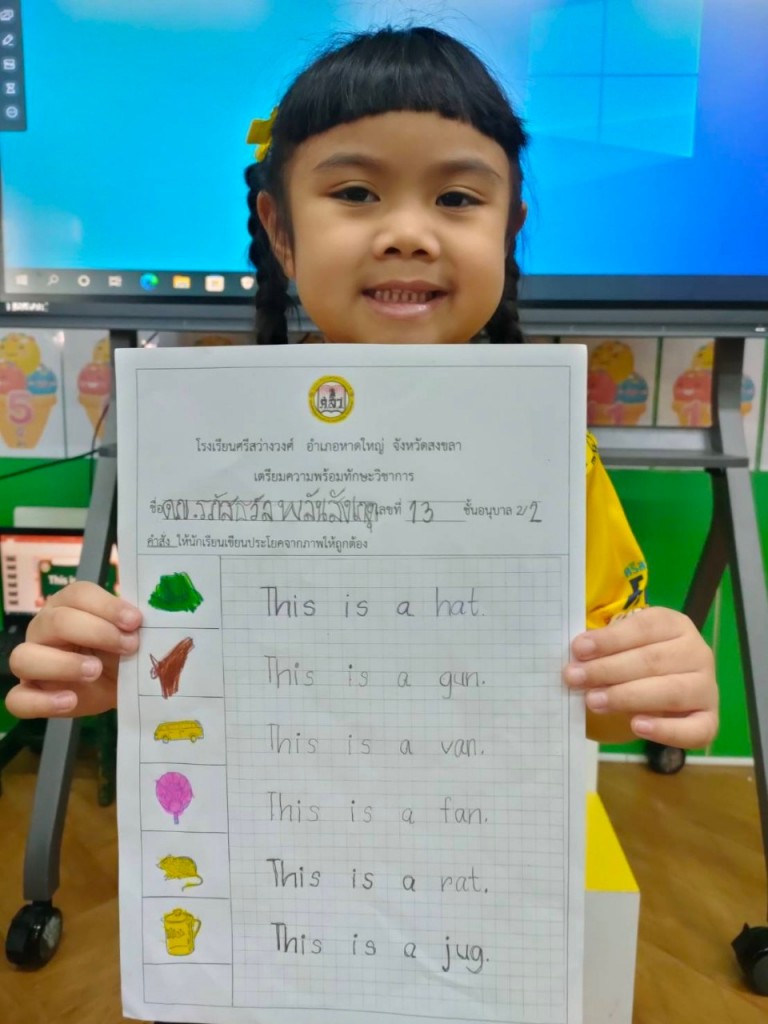 ศสว
โรงเรียนศรีสว่างวงศ์ อำเภอหาดใหญ่ จังหวัดสงขลา
เตรียมความพร้อมทักษะวิชาการ
ชื่อ ด.ญ. เลขที่ 13 ชั้นอนุบาล 2/2
คำสั่ง ให้นักเรียนเขียนประโยคจากภาพให้ถูกต้อง
This is a hat.
This is a gun.
This is a van.
This is a fan.
This is a rat.
This is a jug.
5
1
This is